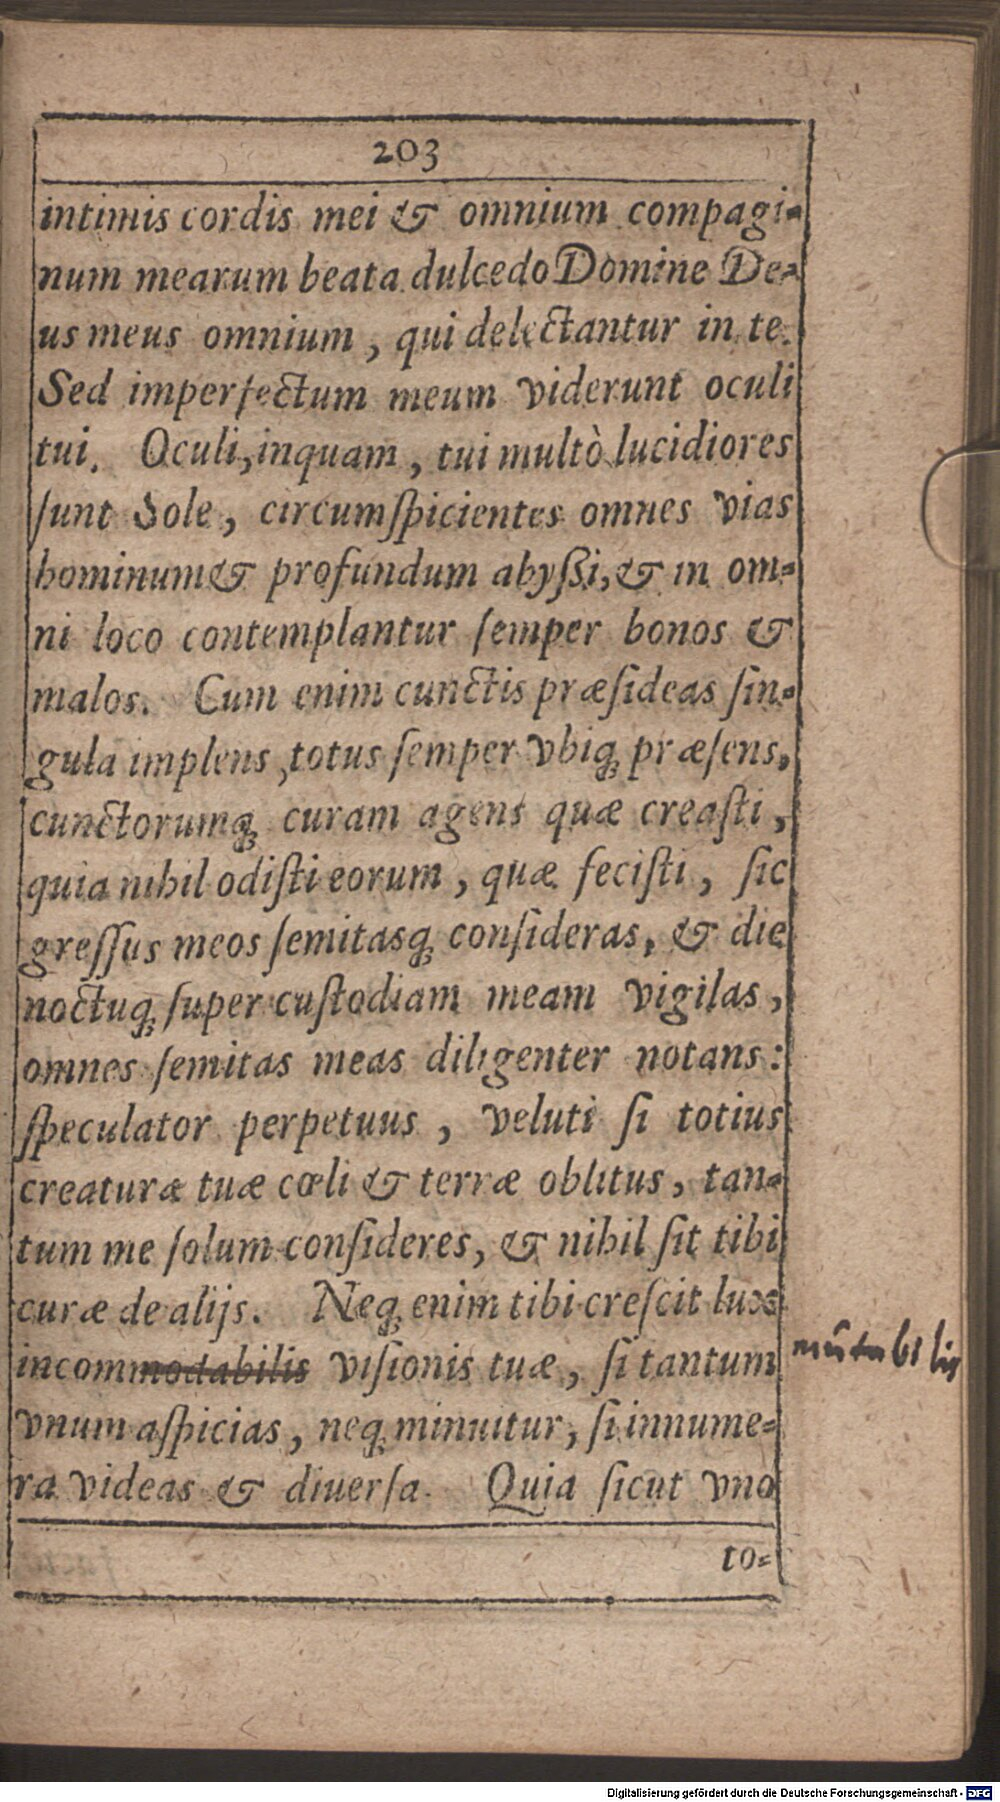 203
intimis cordis mei & omnium compagi-
num mearum beata dulcedo Domine De-
us meus omnium, qui delectantur in te.
Sed imperfectum meum viderunt oculi
tui. Oculi, inquam, tui multò lucidiores
ſunt Sole, circumſpicientes omnes vias
hominum & profundum abyßi, & in om-
ni loco contemplantur ſemper bonos &
malos. Cum enim cunctis præſideas ſin-
gula implens, totus ſemper vbiq; præſens,
cunctorumq; curam agens quæ creaſti,
quia nihil odiſti eorum, quæ feciſti, ſic
greſſus meos ſemitasq; conſideras, & die
noctuq; ſuper cuſtodiam meam vigilas,
omnes ſemitas meas diligenter notans:
ſpeculator perpetuus, veluti ſi totius
creaturæ tuæ cœli & terræ oblitus, tan-
tum me ſolum conſideres, & nihil ſit tibi
curæ de alijs. Neq; enim tibi creſcit lux
incommodabilis viſionis tuæ, ſi tantum
mutabilis
vnum aſpicias, neq; minuitur, ſi innume-
ra videas & diuerſa. Quia ſicut vno
to-
Digitalisierung gefördert durch die Deutsche Forschungsgemeinschaft - DFG